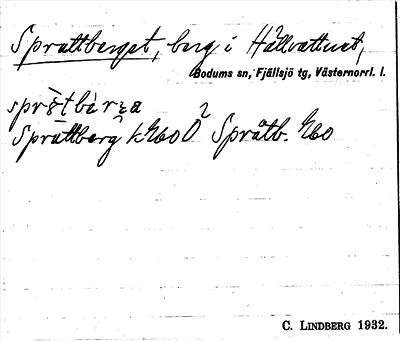 Sprattberget, berg i Hällvattnet,
Bodums sn, Fjällsjö tg, Västernorrl. l.
Sprättberg k Ö² Språtb.
C. LINDBERG 1932.